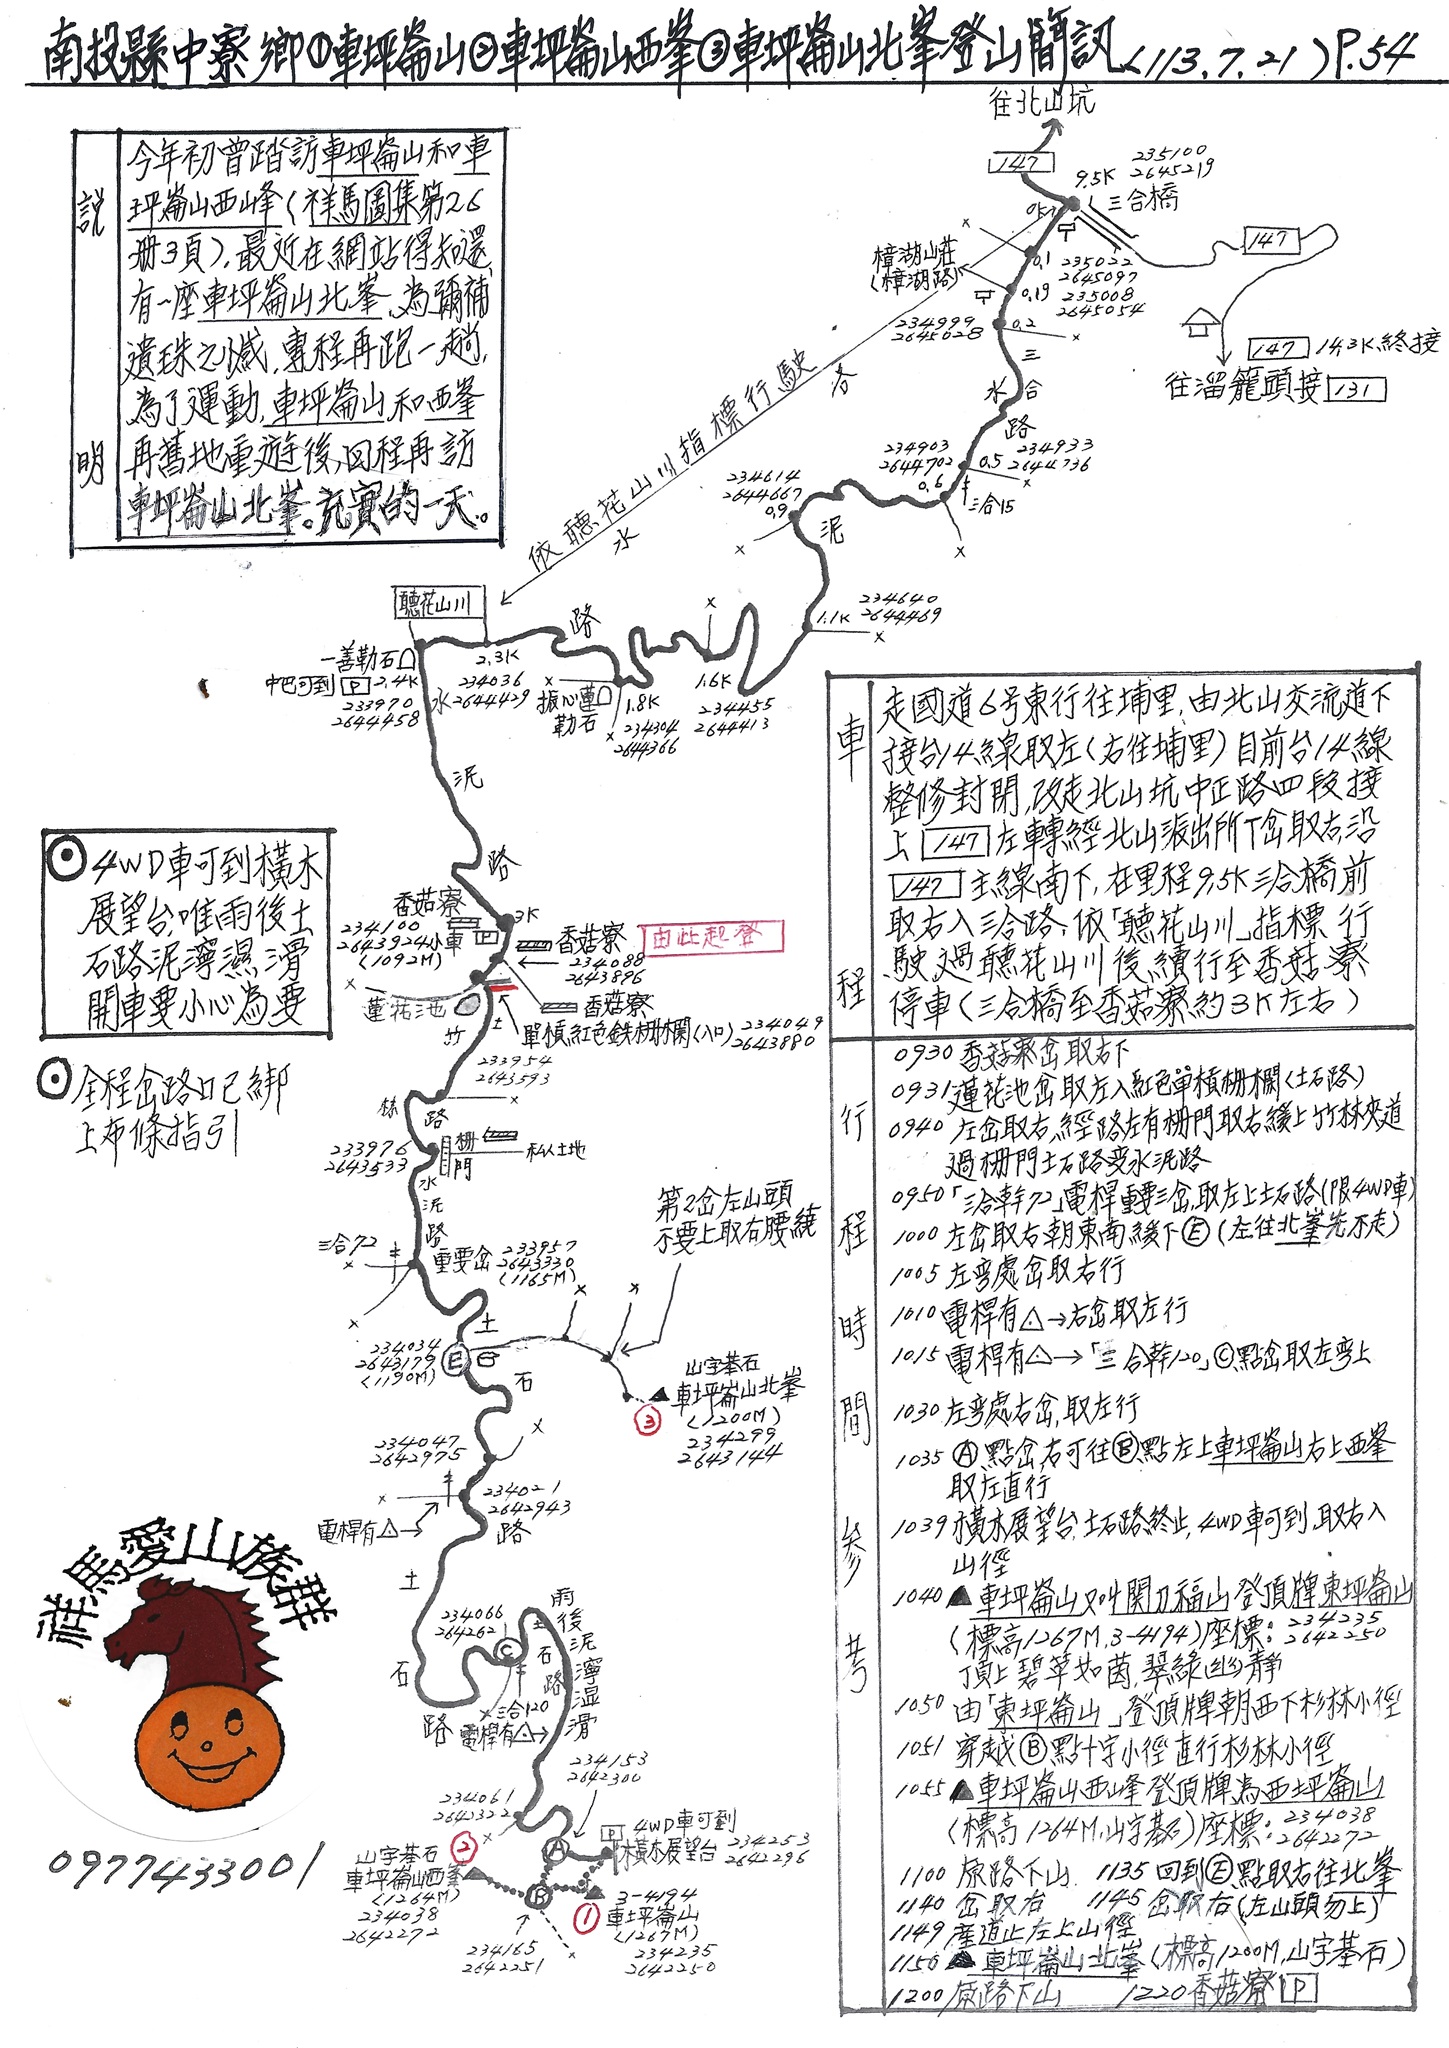 南投縣中寮鄉①車坪崙山②車坪崙山西峯③車坪崙山北峯登山簡訊(113.7.21)P.54
往北山坑
147
235100
2645219
9.5K
三合橋
說明
今年初曾踏訪車坪崙山和車
坪崙山西峰(祥馬圖集第26
冊3頁),最近在網站得知還
有一座車坪崙山北峯,為彌補
遺珠之憾,專程再跑一趟,
為了運動,車坪崙山和西峯
再舊地重遊後,回程再訪
車坪崙山北峯。充實的一天。
樟湖山莊
(樟湖路)
0.1
235022
2645097
0.19
235008
2645054
234999
2645028
0.2
147
147 14.3K終接
往溜籠頭接131
三合路
水泥
依聽花山川指標行駛
234903
2644702
0.6
0.5
234933
2644736
三合15
234614
2644667
0.9
1.1K
234640
2644469
聽花山川
一善勒石
中巴可到 P 2.4K
233970
2644458
2.3K
234036
2644429
振心蓮
勒石
1.8K
234304
2644366
1.6K
234455
2644413
水泥路
水泥路
◎4WD車可到橫木
展望台,唯雨後土
石路泥濘濕滑
開車要小心為要
◎全程岔路口已綁
上布條指引
香菇寮
3K
234100
2643924小車 P
(1092M)
香菇寮
234088
2643896
由此起登
香菇寮
蓮花池
單槓紅色鉄柵欄(入口)
234049
2643880
竹林
土
路
233954
2643593
233976
2643533
柵門
私人土地
水泥路
三合72
重要岔
233957
2643330
(1165M)
第2岔左山頭
不要上取右腰繞
土石路
234034
2643179
(1190M)
E
山字基石
車坪崙山北峯
(1200M)
234299
2643144
③
234047
2642975
234021
2642943
電桿有△→
土石路
234066
264262
C
土石路
雨後泥濘湿滑
三合120
電桿有△→
234153
2642300
234061
2642322
A
P 4WD車可到
橫木展望台
234253
2642296
②
山字基石
車坪崙山西峯
(1264M)
234038
2642272
B
①
3-4194
車坪崙山
(1267M)
234235
2642250
234165
2642251
祥馬愛山族群
0977433001
車程
走國道6号東行往埔里,由北山交流道下
接台14線取左(右往埔里)目前台14線
整修封閉,改走北山坑中正路四段接
上147左轉經北山派出所下岔取右,沿
147主線南下,在里程9.5K三合橋前
取右入三合路,依「聽花山川」指標行
駛,過聽花山川後續行至香菇寮
停車(三合橋至香菇寮約3K左右)
行程時間參考
0930香菇寮岔取右下
0931蓮花池岔取左入紅色單槓柵欄(土石路)
0940左岔取右,經路左有柵門取右緩上竹林夾道
過柵門土石路變水泥路
0950「三合幹72」電桿重要三岔,取左上土石路(限4WD車)
1000左岔取右朝東南緩下Ⓔ(左往北峯先不走)
1005左彎處岔取右行
1010電桿有△→右岔取左行
1015電桿有△→「三合幹120」Ⓒ點岔取左彎上
1030左彎處右岔,取左行
1035Ⓐ點岔右可往Ⓑ點左上車坪崙山右上西峯
取左直行
1039橫木展望台,土石路終止,4WD車可到,取右入
山徑
1040▲車坪崙山又叫開刀福山登頂牌東坪崙山
(標高1267M,3-4194)座標:234235
2642250
頂上碧草如茵,翠綠幽靜
1050由「東坪崙山」登頂牌朝西下杉林小徑
1051穿越Ⓑ點十字小徑直行杉林小徑
1055▲車坪崙山西峰登頂牌為西坪崙山
(標高1264M,山字基石)座標:234038
2642272
1100原路下山 1135回到Ⓔ點取右往北峯
1140岔取右 1145岔取右(左山頭勿上)
1149產道止左上山徑
1150▲車坪崙山北峯(標高1200M,山字基石)
1200原路下山 1220香菇寮 P